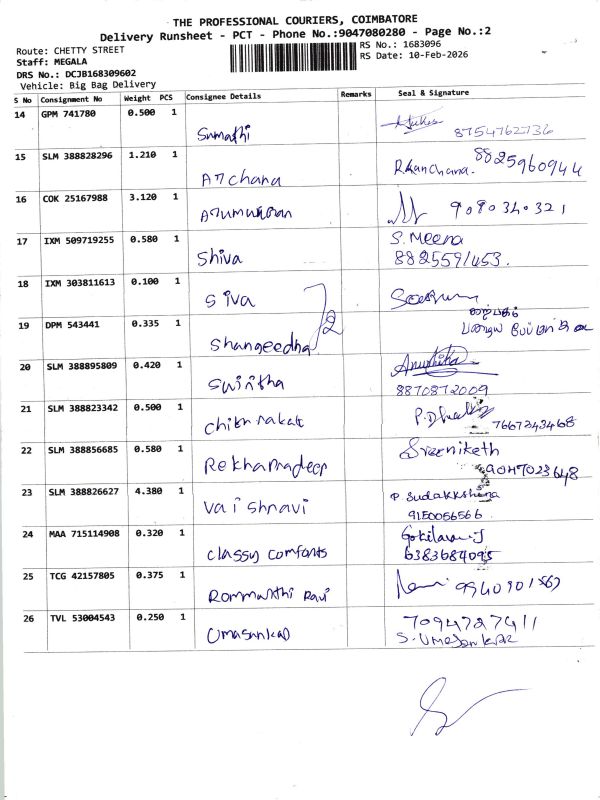 THE PROFESSIONAL COURIERS, COIMBATORE
Delivery Runsheet - PCT - Phone No.:9047080280 - Page No.:2
Route: CHETTY STREET
Staff: MEGALA
DRS No.: DCJB168309602
Vehicle: Big Bag Delivery
RS No.: 1683096
RS Date: 10-Feb-2026
S No Consignment No Weight PCS Consignee Details Remarks Seal & Signature
14 GPM 741780 0.500 1 Sumathi 8754762736
15 SLM 388828296 1.210 1 Archana 8825960944
16 COK 25167988 3.120 1
17 IXM 509719255 0.580 1 Shiva S. Meena
18 IXM 303811613 0.100 1 Siva
19 DPM 543441 0.335 1 Shangeedha
20 SLM 388895809 0.420 1 8870872009
21 SLM 388823342 0.500 1 7667243468
22 SLM 388856685 0.580 1 Sreeniketh
9047023648
23 SLM 388826627 4.380 1 Vaishnavi P. Sudakkshana
9150056566
24 MAA 715114908 0.320 1 Classy Comforts
6383684095
25 TCG 42157805 0.375 1
26 TVL 53004543 0.250 1 Umasankar 7094727411
S. Umasankar